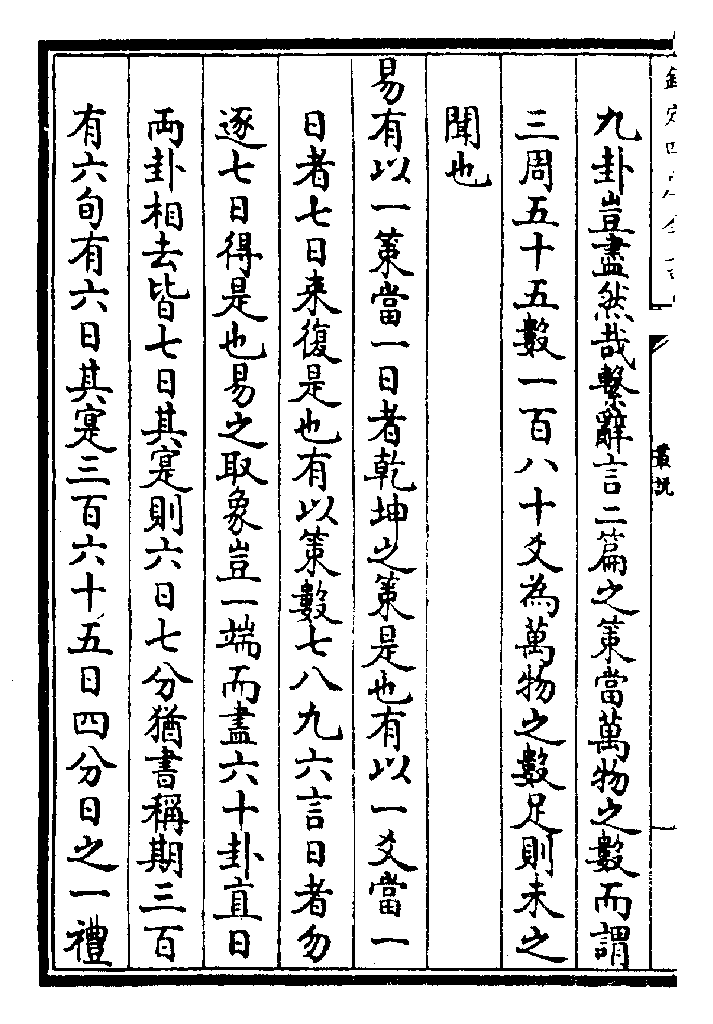 九卦豈盡然哉繫辭言二篇之策當萬物之數而謂
三周五十五數一百八十爻為萬物之數足則未之
聞也
易有以一策當一日者乾坤之策是也有以一爻當一
日者七日来復是也有以策數七八九六言日者勿
逐七日得是也易之取象豈一端而盡六十卦直日
兩卦相去皆七日其寔則六日七分猶書稱期三百
有六旬有六日其寔三百六十五日四分日之一禮
叢説